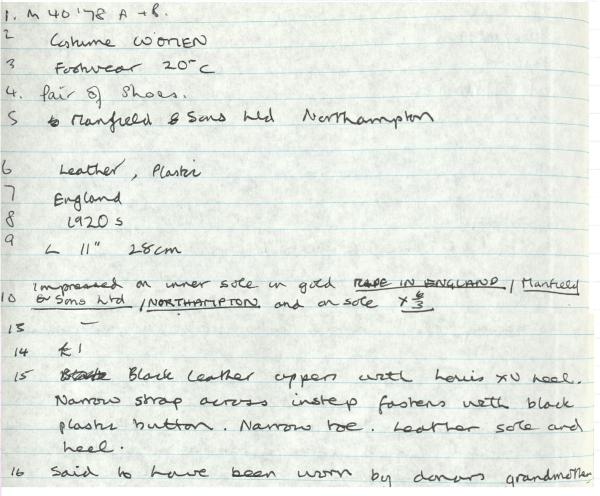 1. M 40 '78 A + B.
2 Costume WOMEN
3 Footwear 20-C
4. Pair of Shoes.
5 Manfield & Sons Ltd Northampton
6 Leather, Plastic
7 England
8 1920s
9 L 11" 28cm
Impressed on inner sole in gold MADE IN ENGLAND / Manfield
10 & Sons Ltd / NORTHAMPTON and on sole x 6/3
13 —
14 £1
15 Black Leather uppers with Louis XV heel.
Narrow strap across instep fastens with black
plastic button. Narrow toe. Leather sole and
heel.
16 Said to have been worn by donors grandmother